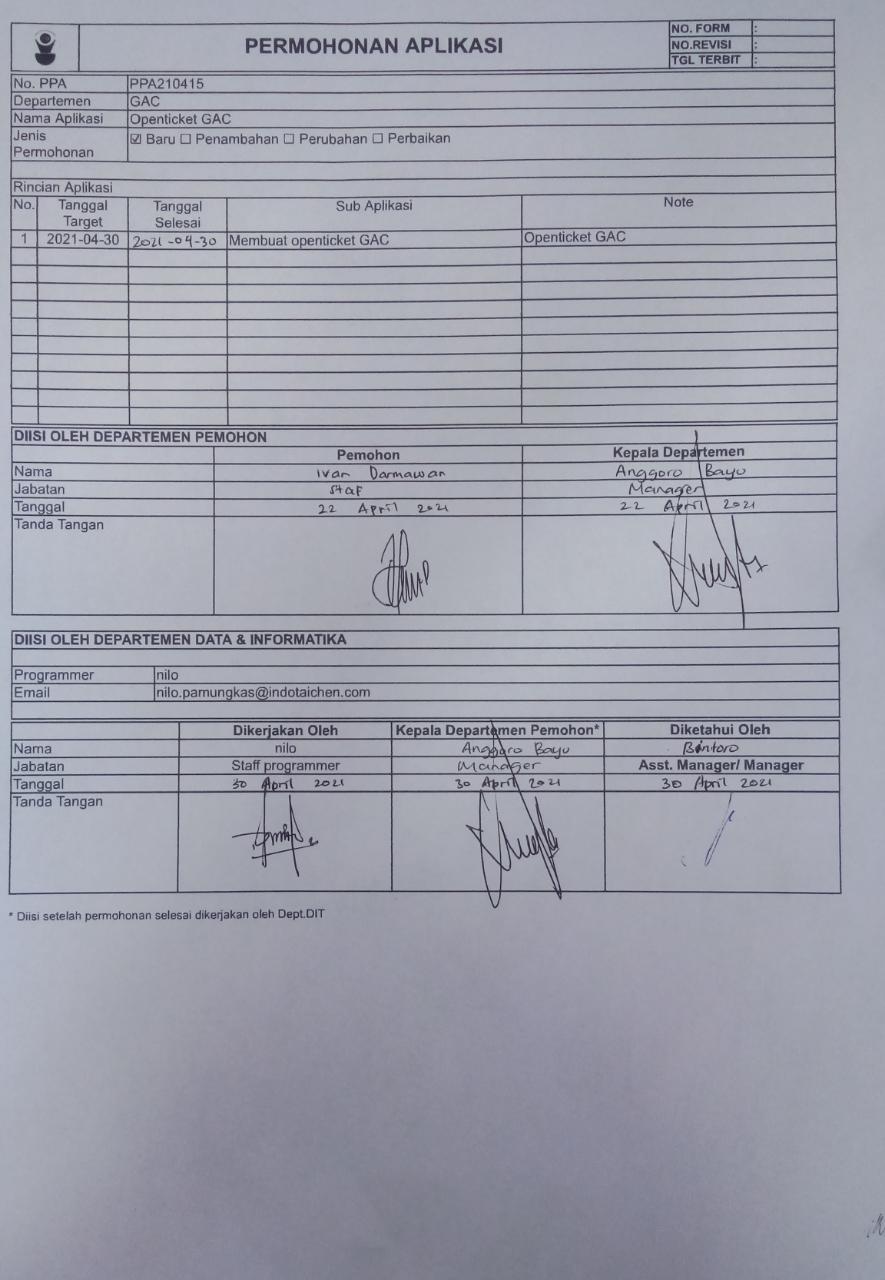 PERMOHONAN APLIKASI
NO. FORM :
NO.REVISI :
TGL TERBIT :
No. PPA PPA210415
Departemen GAC
Nama Aplikasi Openticket GAC
Jenis Permohonan ☑ Baru ☐ Penambahan ☐ Perubahan ☐ Perbaikan
Rincian Aplikasi
No. Tanggal Target Tanggal Selesai Sub Aplikasi Note
1 2021-04-30 2021-04-30 Membuat openticket GAC Openticket GAC
DIISI OLEH DEPARTEMEN PEMOHON
Pemohon Kepala Departemen
Nama Ivan Darmawan Anggoro Bayu
Jabatan Staf Manager
Tanggal 22 April 2021 22 April 2021
Tanda Tangan
DIISI OLEH DEPARTEMEN DATA & INFORMATIKA
Programmer nilo
Email nilo.pamungkas@indotaichen.com
Dikerjakan Oleh Kepala Departemen Pemohon* Diketahui Oleh
Nama nilo Anggoro Bayu Bintoro
Jabatan Staff programmer Manager Asst. Manager/ Manager
Tanggal 30 April 2021 30 April 2021 30 April 2021
Tanda Tangan
* Diisi setelah permohonan selesai dikerjakan oleh Dept.DIT